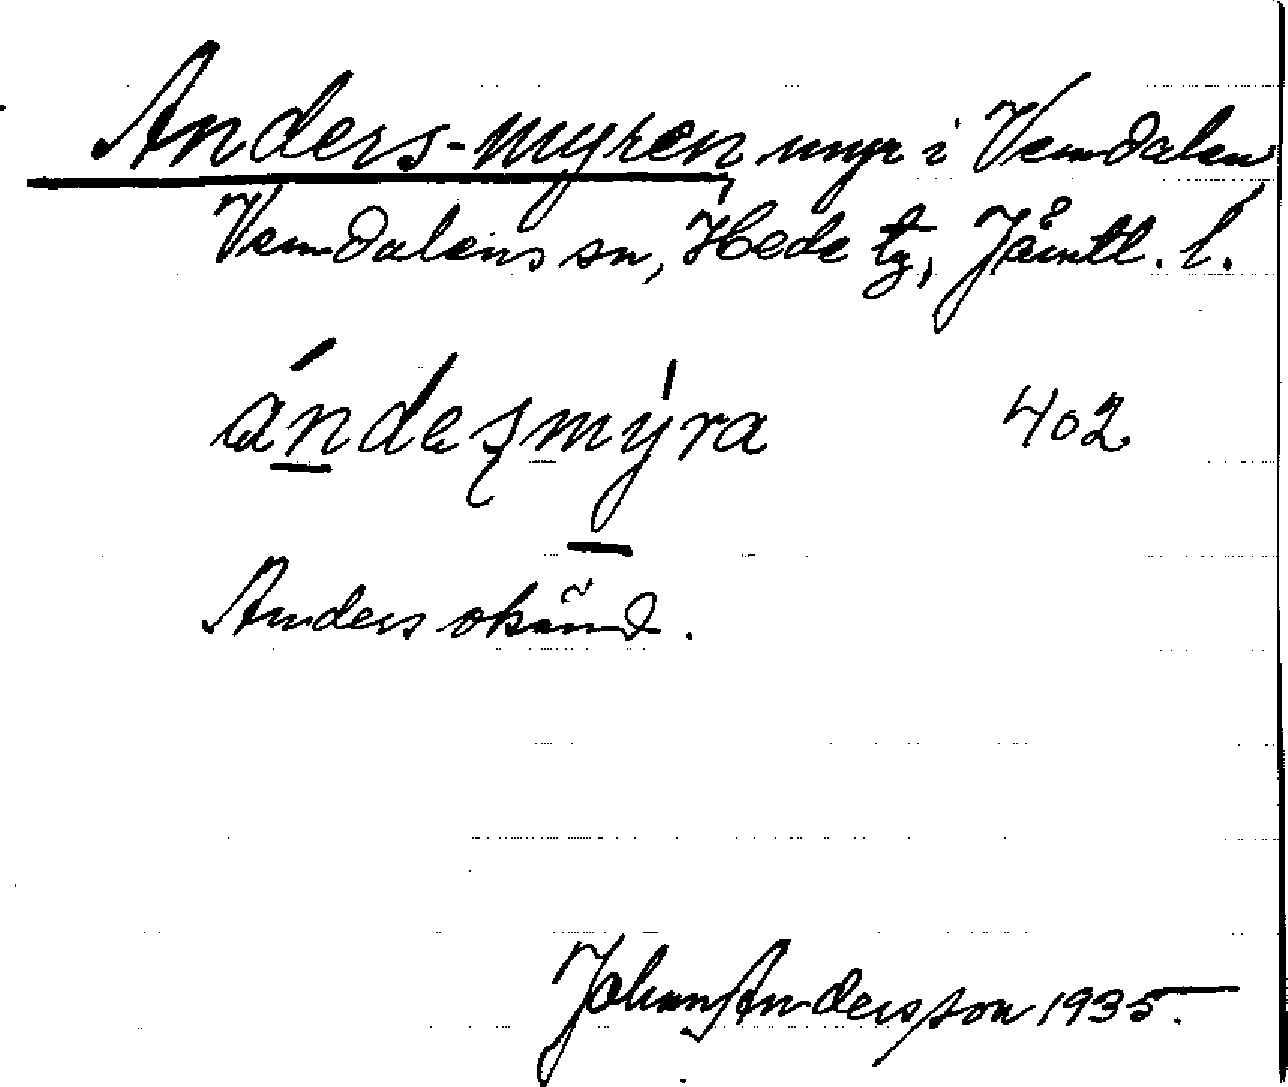 Anders-myren, myr i Vemdalen,
Vemdalens sn, Hede tg, Jämtl. l.
ándeșmýra 402
Anders okänd.
Johan Andersson 1935.